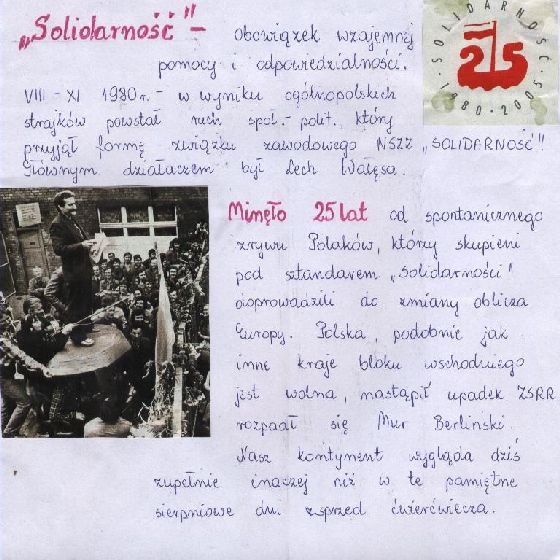 „Solidarność" – obowiązek wzajemnej
pomocy i odpowiedzialności.
VIII - XI 1980 r. - w wyniku ogólnopolskich
strajków powstał ruch społ.-polit., który
przyjął formę związku zawodowego NSZZ „SOLIDARNOŚĆ".
Głównym działaczem był Lech Wałęsa.
SOLIDARNOŚĆ · 1980-2005 ·
25
Minęło 25 lat od spontanicznego
zrywu Polaków, którzy skupieni
pod sztandarem „Solidarności"
doprowadzili do zmiany oblicza
Europy. Polska, podobnie jak
inne kraje bloku wschodniego
jest wolna, nastąpił upadek ZSRR
rozpadł się Mur Berliński.
Nasz kontynent wygląda dziś
zupełnie inaczej niż w te pamiętne
sierpniowe dni sprzed ćwierćwiecza.